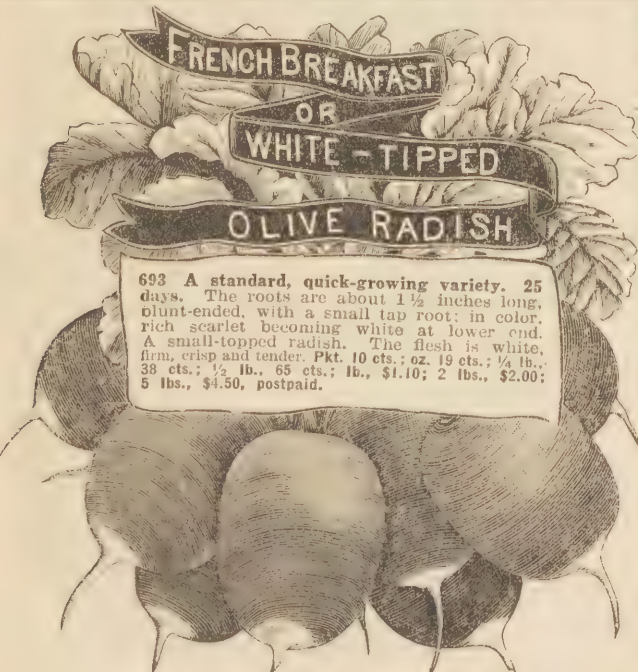 FRENCH BREAKFAST
OR
WHITE-TIPPED
OLIVE RADISH
693 A standard, quick-growing variety. 25
days. The roots are about 1½ inches long,
blunt-ended, with a small tap root; in color,
rich scarlet becoming white at lower end.
A small-topped radish. The flesh is white,
firm, crisp and tender. Pkt. 10 cts.; oz. 19 cts.; ¼ lb.,
38 cts.; ½ lb., 65 cts.; lb., $1.10; 2 lbs., $2.00;
5 lbs., $4.50, postpaid.